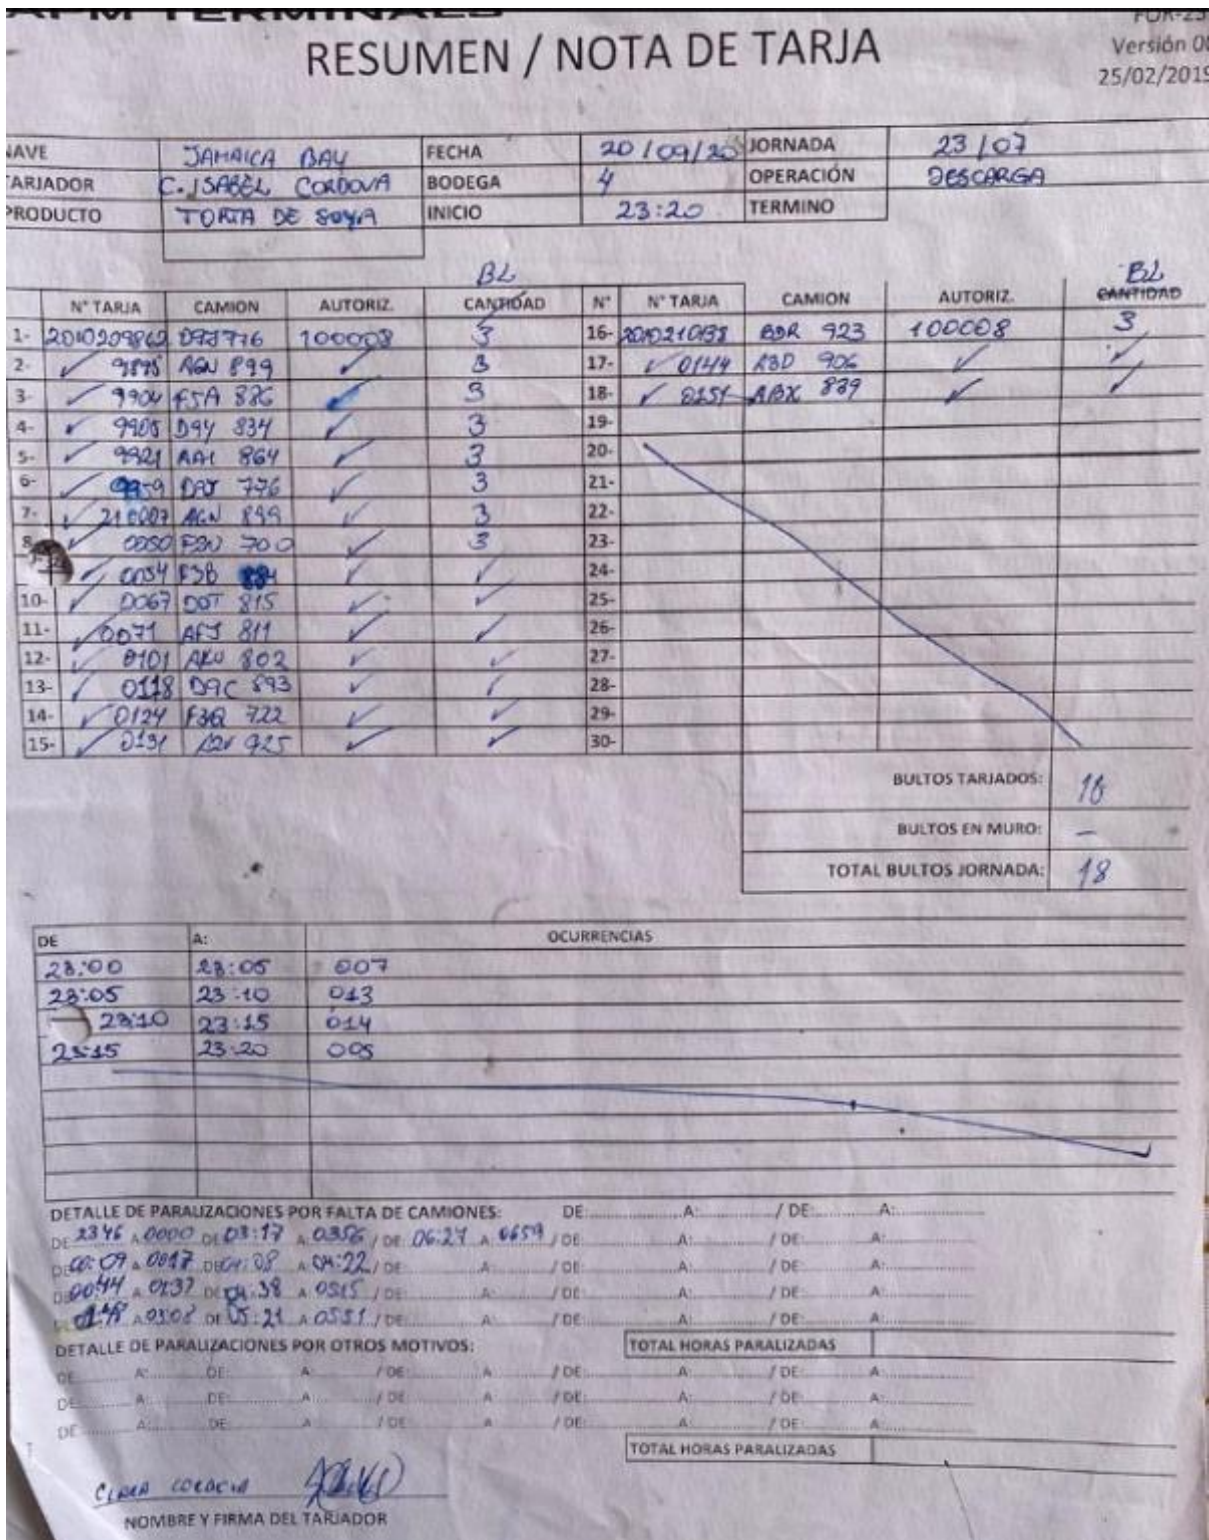 APM TERMINALS
RESUMEN / NOTA DE TARJA
FOR-23
Versión 0
25/02/2019
NAVE JAMAICA BAY FECHA 20/09/20 JORNADA 23/07
TARJADOR C. ISABEL CORDOVA BODEGA 4 OPERACIÓN DESCARGA
PRODUCTO TORTA DE SOYA INICIO 23:20 TERMINO
BL BL
N° TARJA CAMION AUTORIZ. CANTIDAD N° N° TARJA CAMION AUTORIZ. CANTIDAD
1- 2010209862 776 100008 3 16- 923 100008 3
2- ✓ AGN 899 ✓ 3 17- ✓ 0144 906 ✓ ✓
3- ✓ 9904 F5A ✓ 3 18- ✓ 0151 ABX 839 ✓ ✓
4- ✓ 9905 D9Y 834 ✓ 3 19-
5- ✓ 9921 864 ✓ 3 20-
6- ✓ 776 ✓ 3 21-
7- ✓ 210007 AGN 899 ✓ 3 22-
8- ✓ 0050 700 ✓ 3 23-
✓ 0054 F3B ✓ ✓ 24-
10- ✓ 0067 815 ✓ ✓ 25-
11- ✓ 0071 AFJ 811 ✓ ✓ 26-
12- ✓ 0101 802 ✓ ✓ 27-
13- ✓ 0118 D9C 893 ✓ ✓ 28-
14- ✓ 0124 722 ✓ ✓ 29-
15- ✓ 0131 925 ✓ ✓ 30-
BULTOS TARJADOS: 18
BULTOS EN MURO: —
TOTAL BULTOS JORNADA: 18
DE A: OCURRENCIAS
23:00 23:05 007
23:05 23:10 013
23:10 23:15 014
23:15 23:20 005
DETALLE DE PARALIZACIONES POR FALTA DE CAMIONES: DE: A: / DE: A:
DE 2346 A 0000 DE 03:17 A 0356 / DE: 06:27 A 0659 / DE: A: / DE: A:
DE 00:09 A 0017 DE 04:08 A 04:22 / DE: A: / DE: A: / DE: A:
DE 00:44 A 0137 DE 04:38 A 0515 / DE: A: / DE: A: / DE: A:
A 0308 DE 05:21 A 0551 / DE: A: / DE: A: / DE: A:
DETALLE DE PARALIZACIONES POR OTROS MOTIVOS: TOTAL HORAS PARALIZADAS
DE A: DE: A / DE: A / DE: A: / DE: A:
DE: A: DE: A / DE: A / DE: A: / DE: A:
DE: A: DE: A / DE: A / DE: A: / DE: A:
TOTAL HORAS PARALIZADAS
NOMBRE Y FIRMA DEL TARJADOR